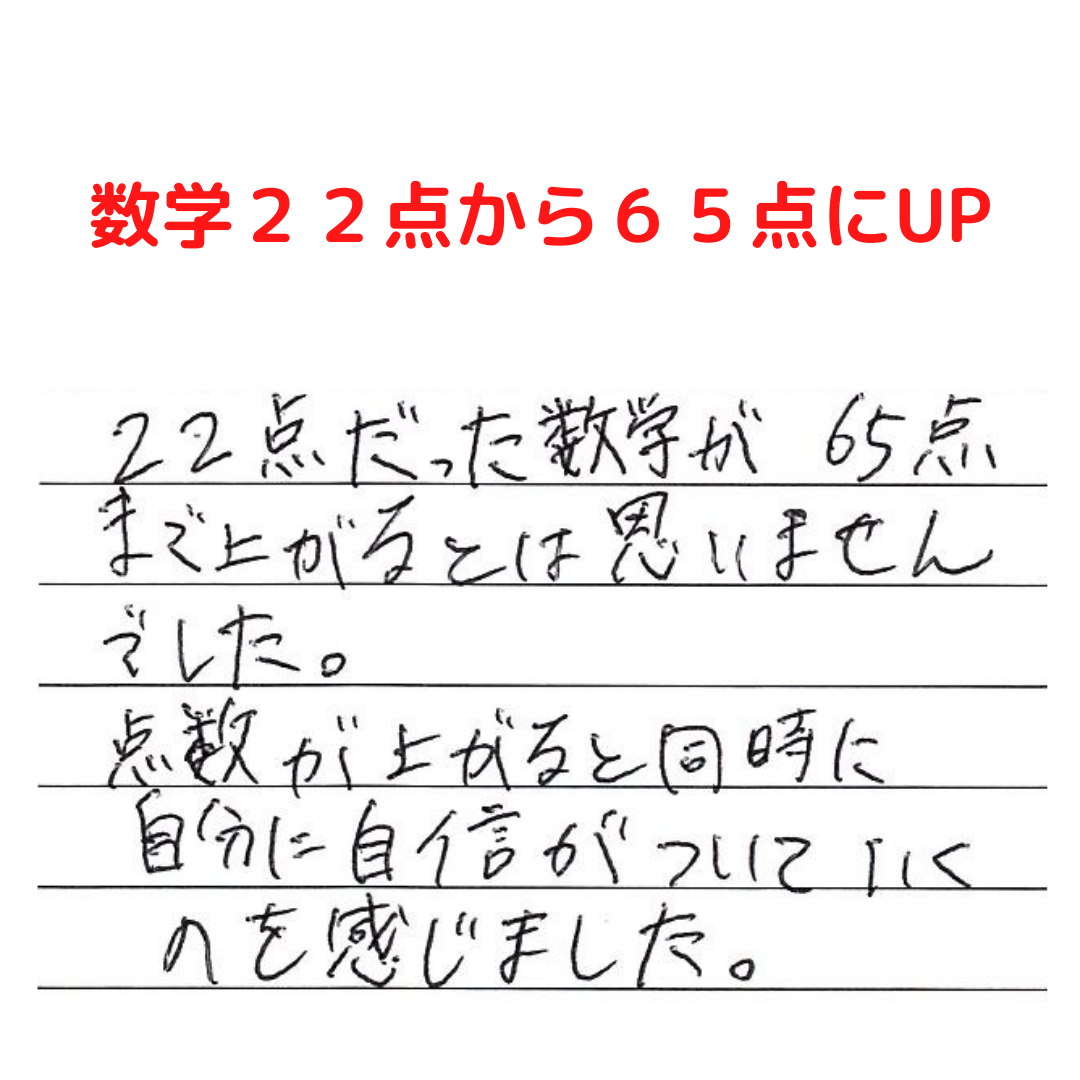 数学２２点から６５点にUP
22点だった数学が 65点
まで上がるとは思いません
でした。
点数が上がると同時に
自分に自信がついていく
のを感じました。